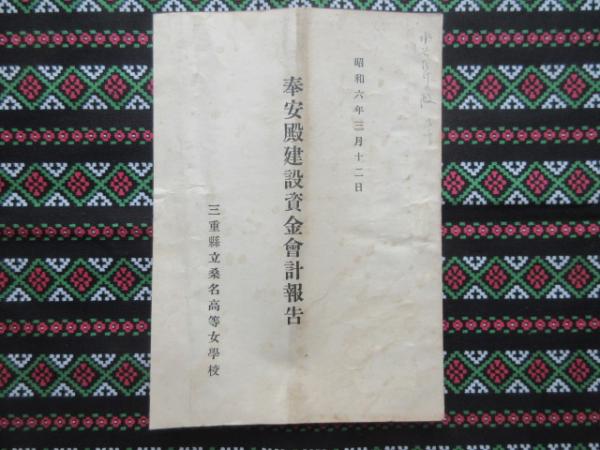 昭和六年三月十二日
奉安殿建設資金會計報告
三重縣立桑名高等女學校